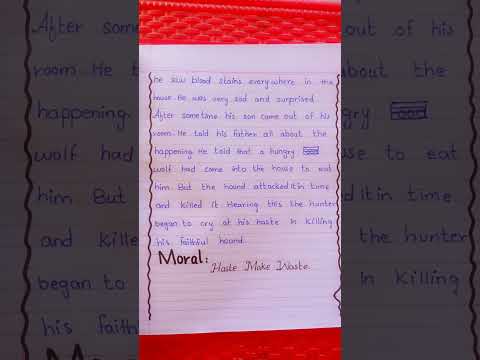 he saw blood stains everywhere in the
house. He was very sad and surprised.
After sometime his son came out of his
room. He told his father all about the
happening. He told that a hungry
wolf had come into the house to eat
him. But the hound attacked it in time
and killed it. Hearing this the hunter
began to cry at his haste in killing
his faithful hound.
Moral:
Haste Make Waste.